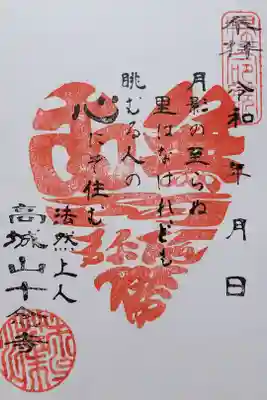 奉拝
令和 年 月 日
月影の至らぬ
里はなけれども
眺むる人の
心にそ住む
法然上人
高城山十念寺